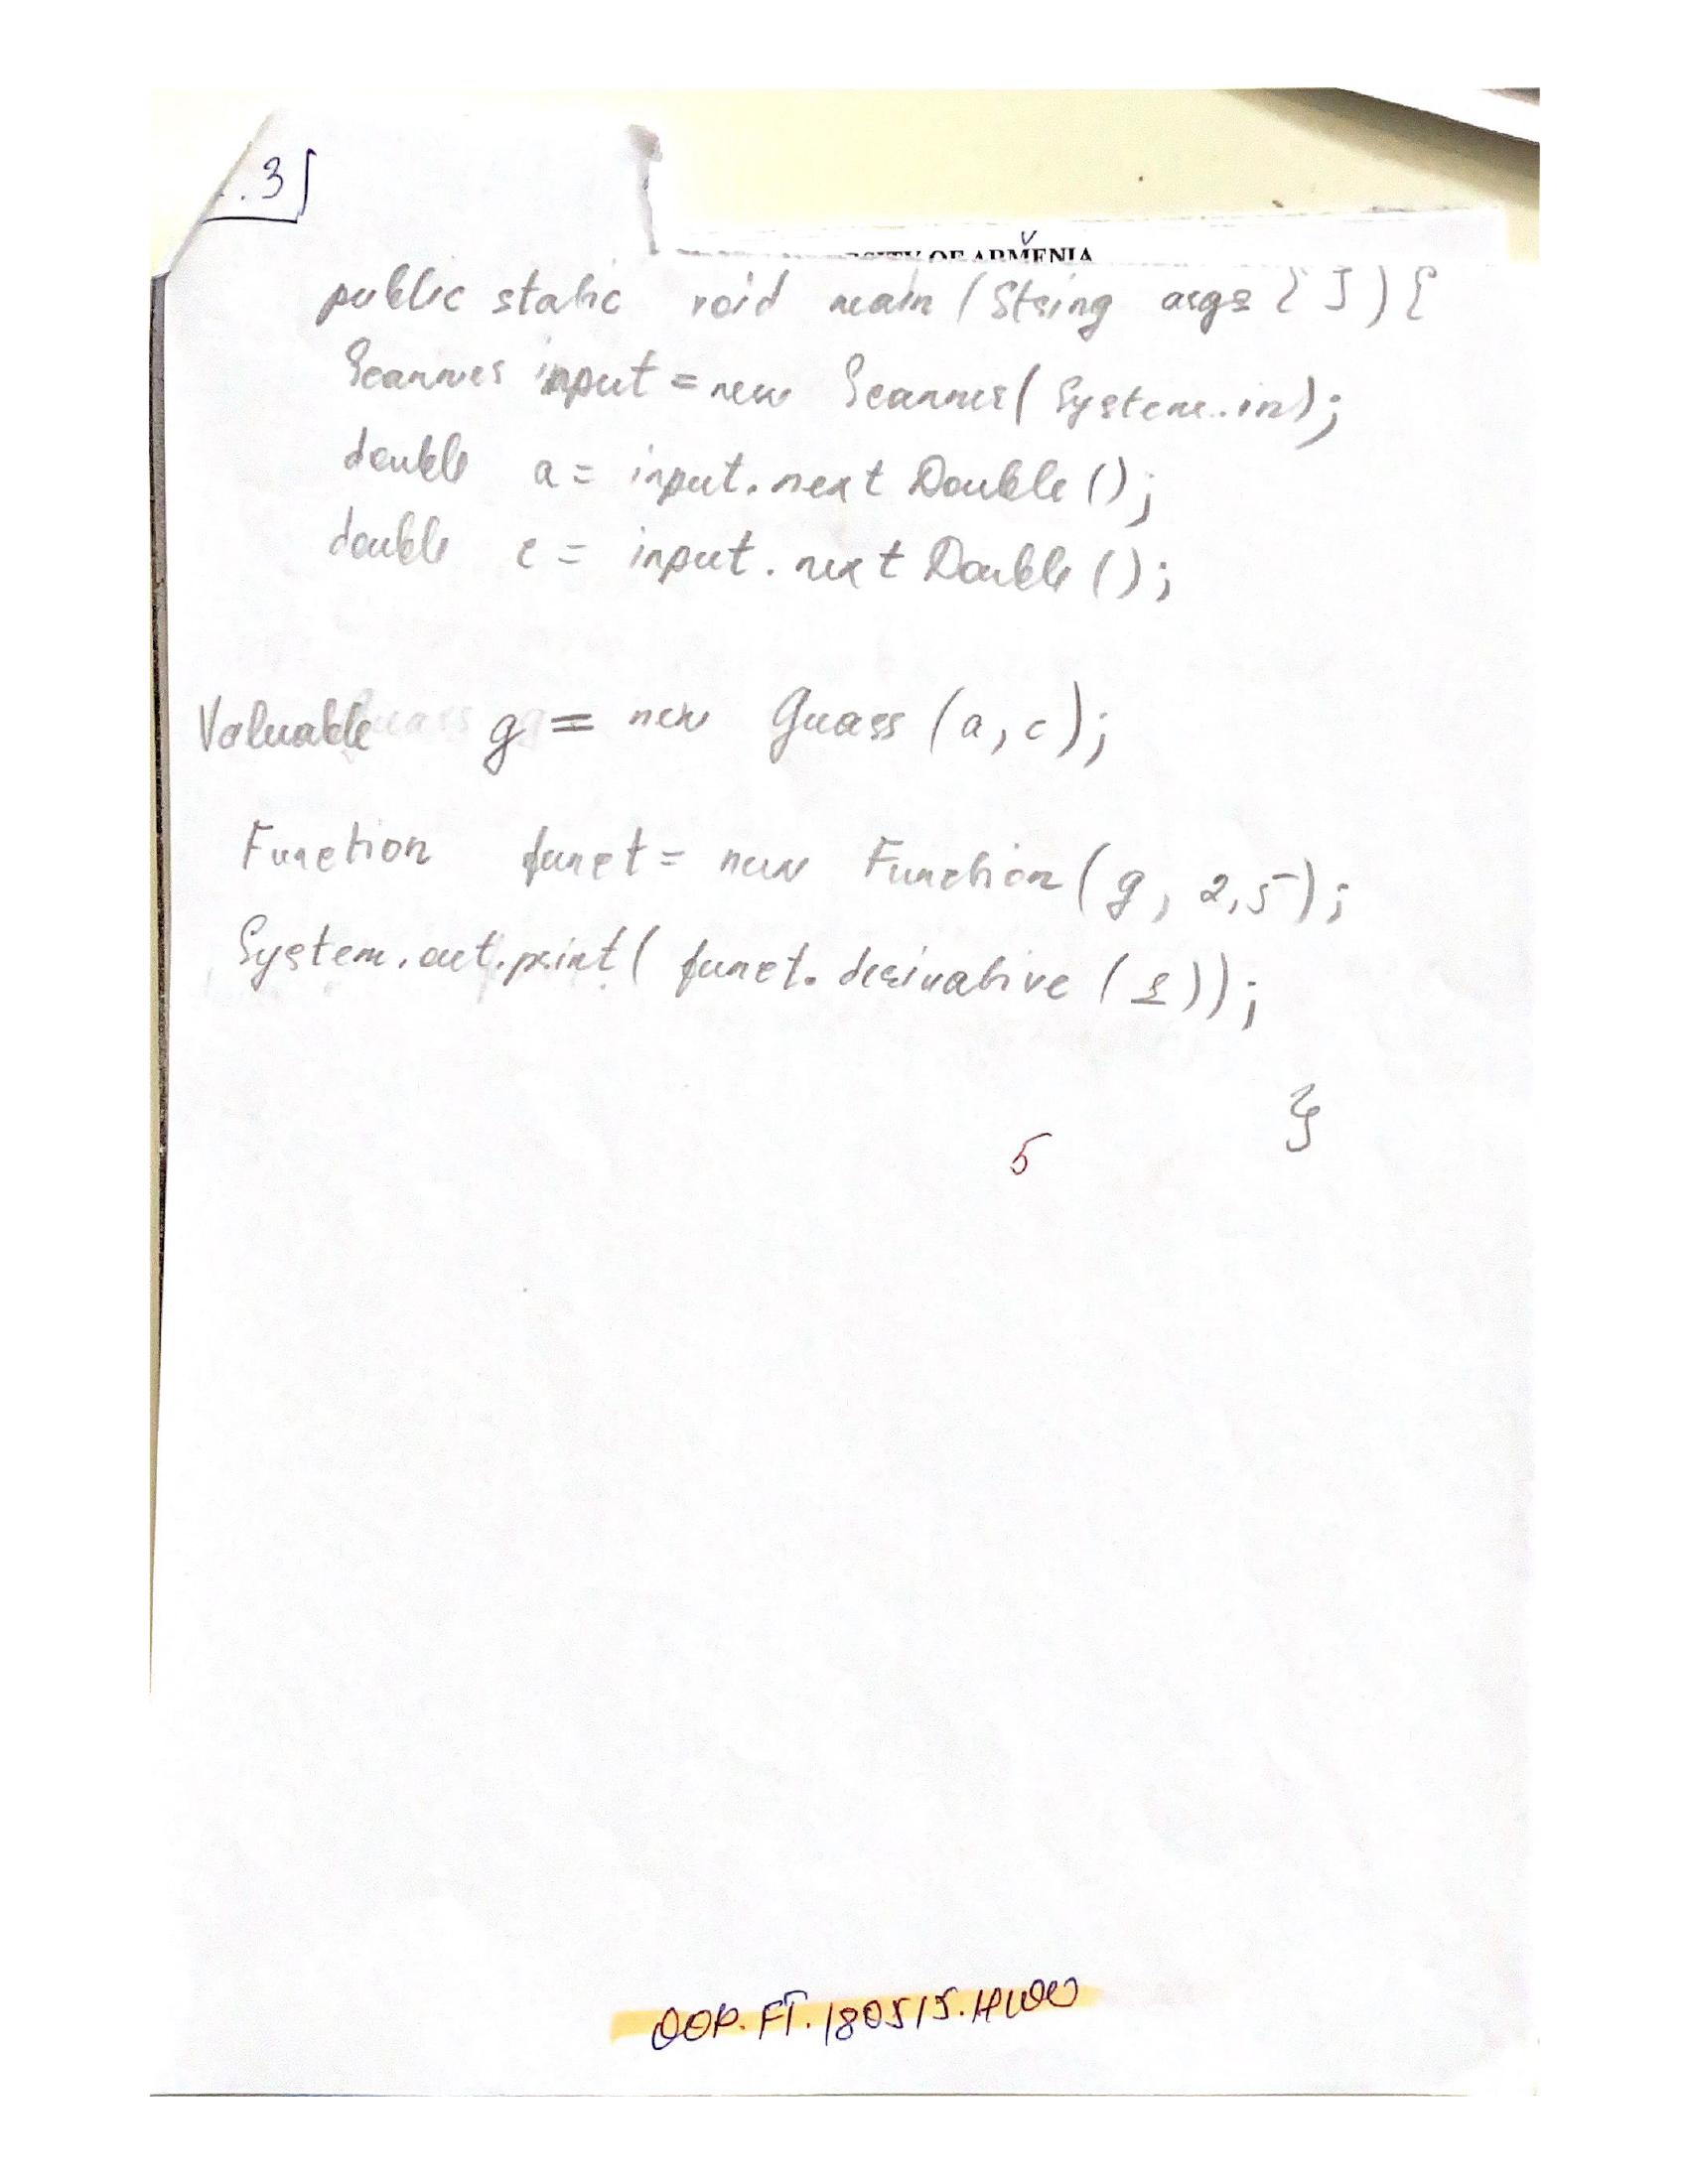 .3
SITY OF ARMENIA
public static void main (String args [ ]) {
Scanner input = new Scanner( System.in);
double a = input.next Double ();
double c = input.next Double ();
Valuable g = new Guass (a, c);
Function funct = new Function ( g, 2,5);
System.out.print( funct. derivative ( 1 ));
}
5
OOP. FT. 180515.